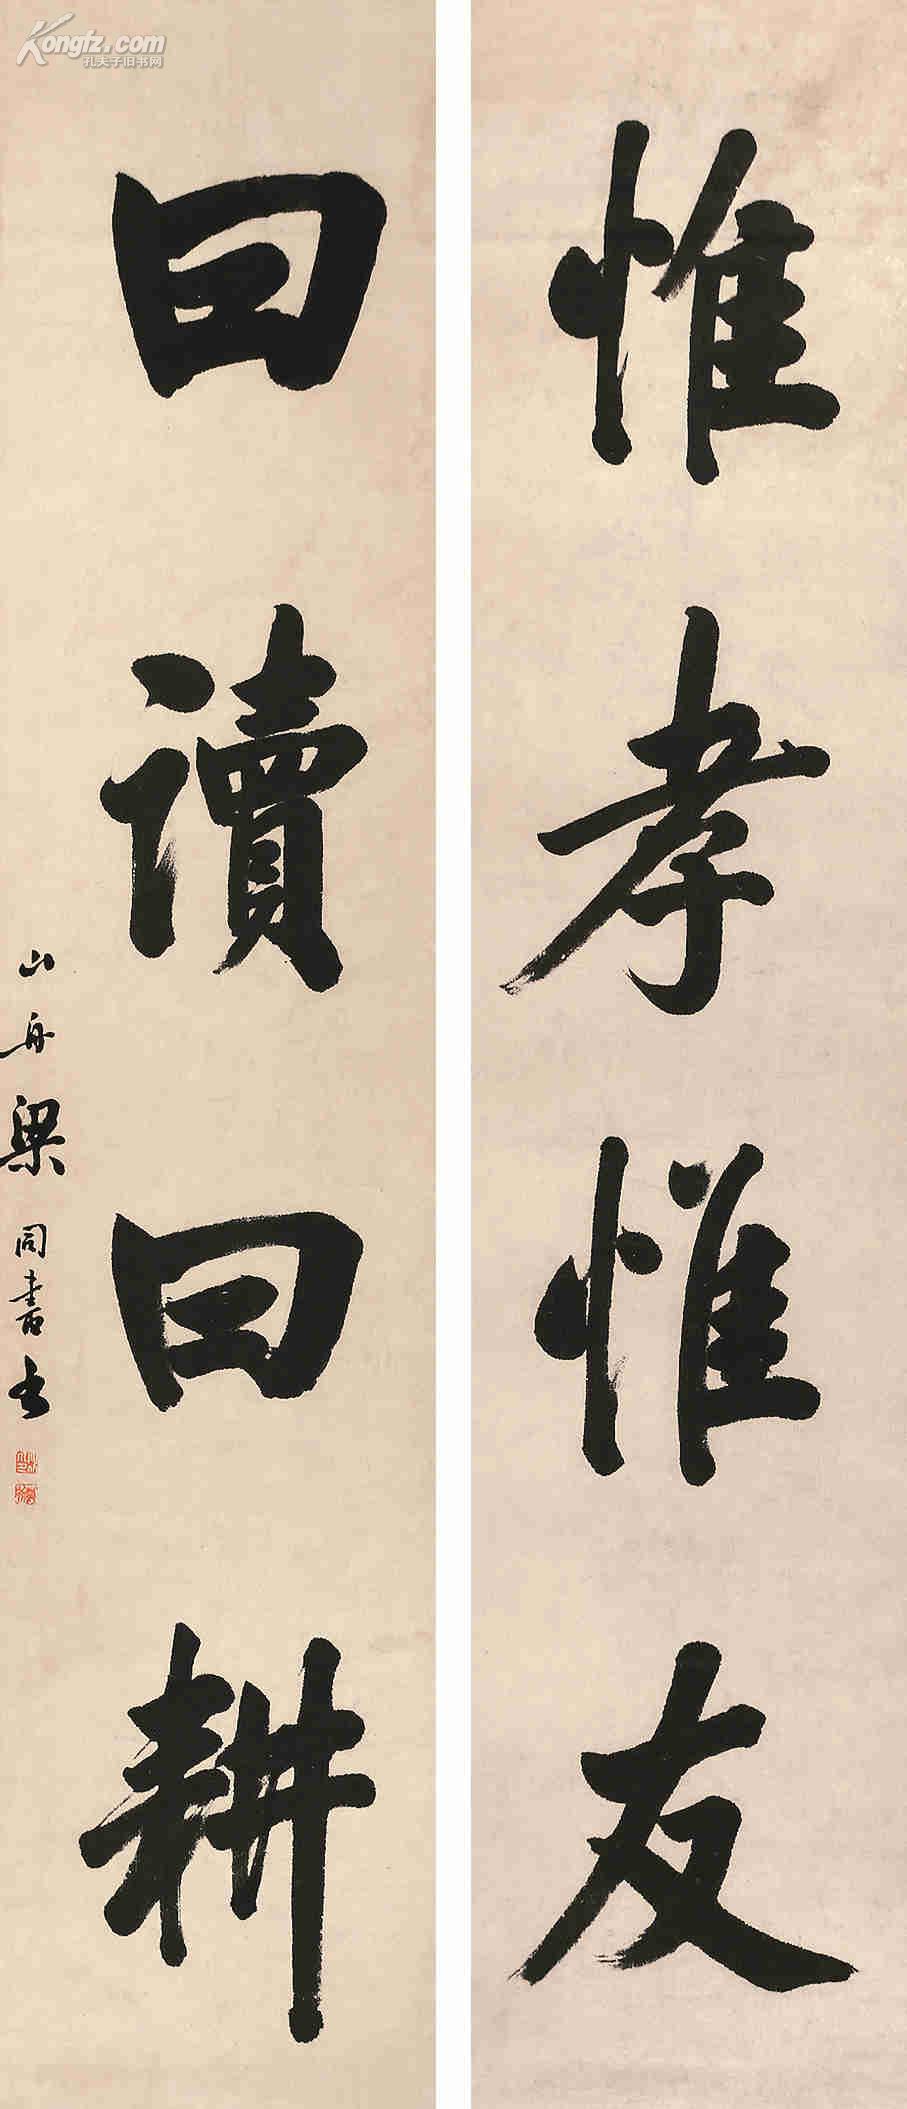 惟孝惟友
曰讀曰耕
山舟梁同書
Kongfz.com
孔夫子旧书网